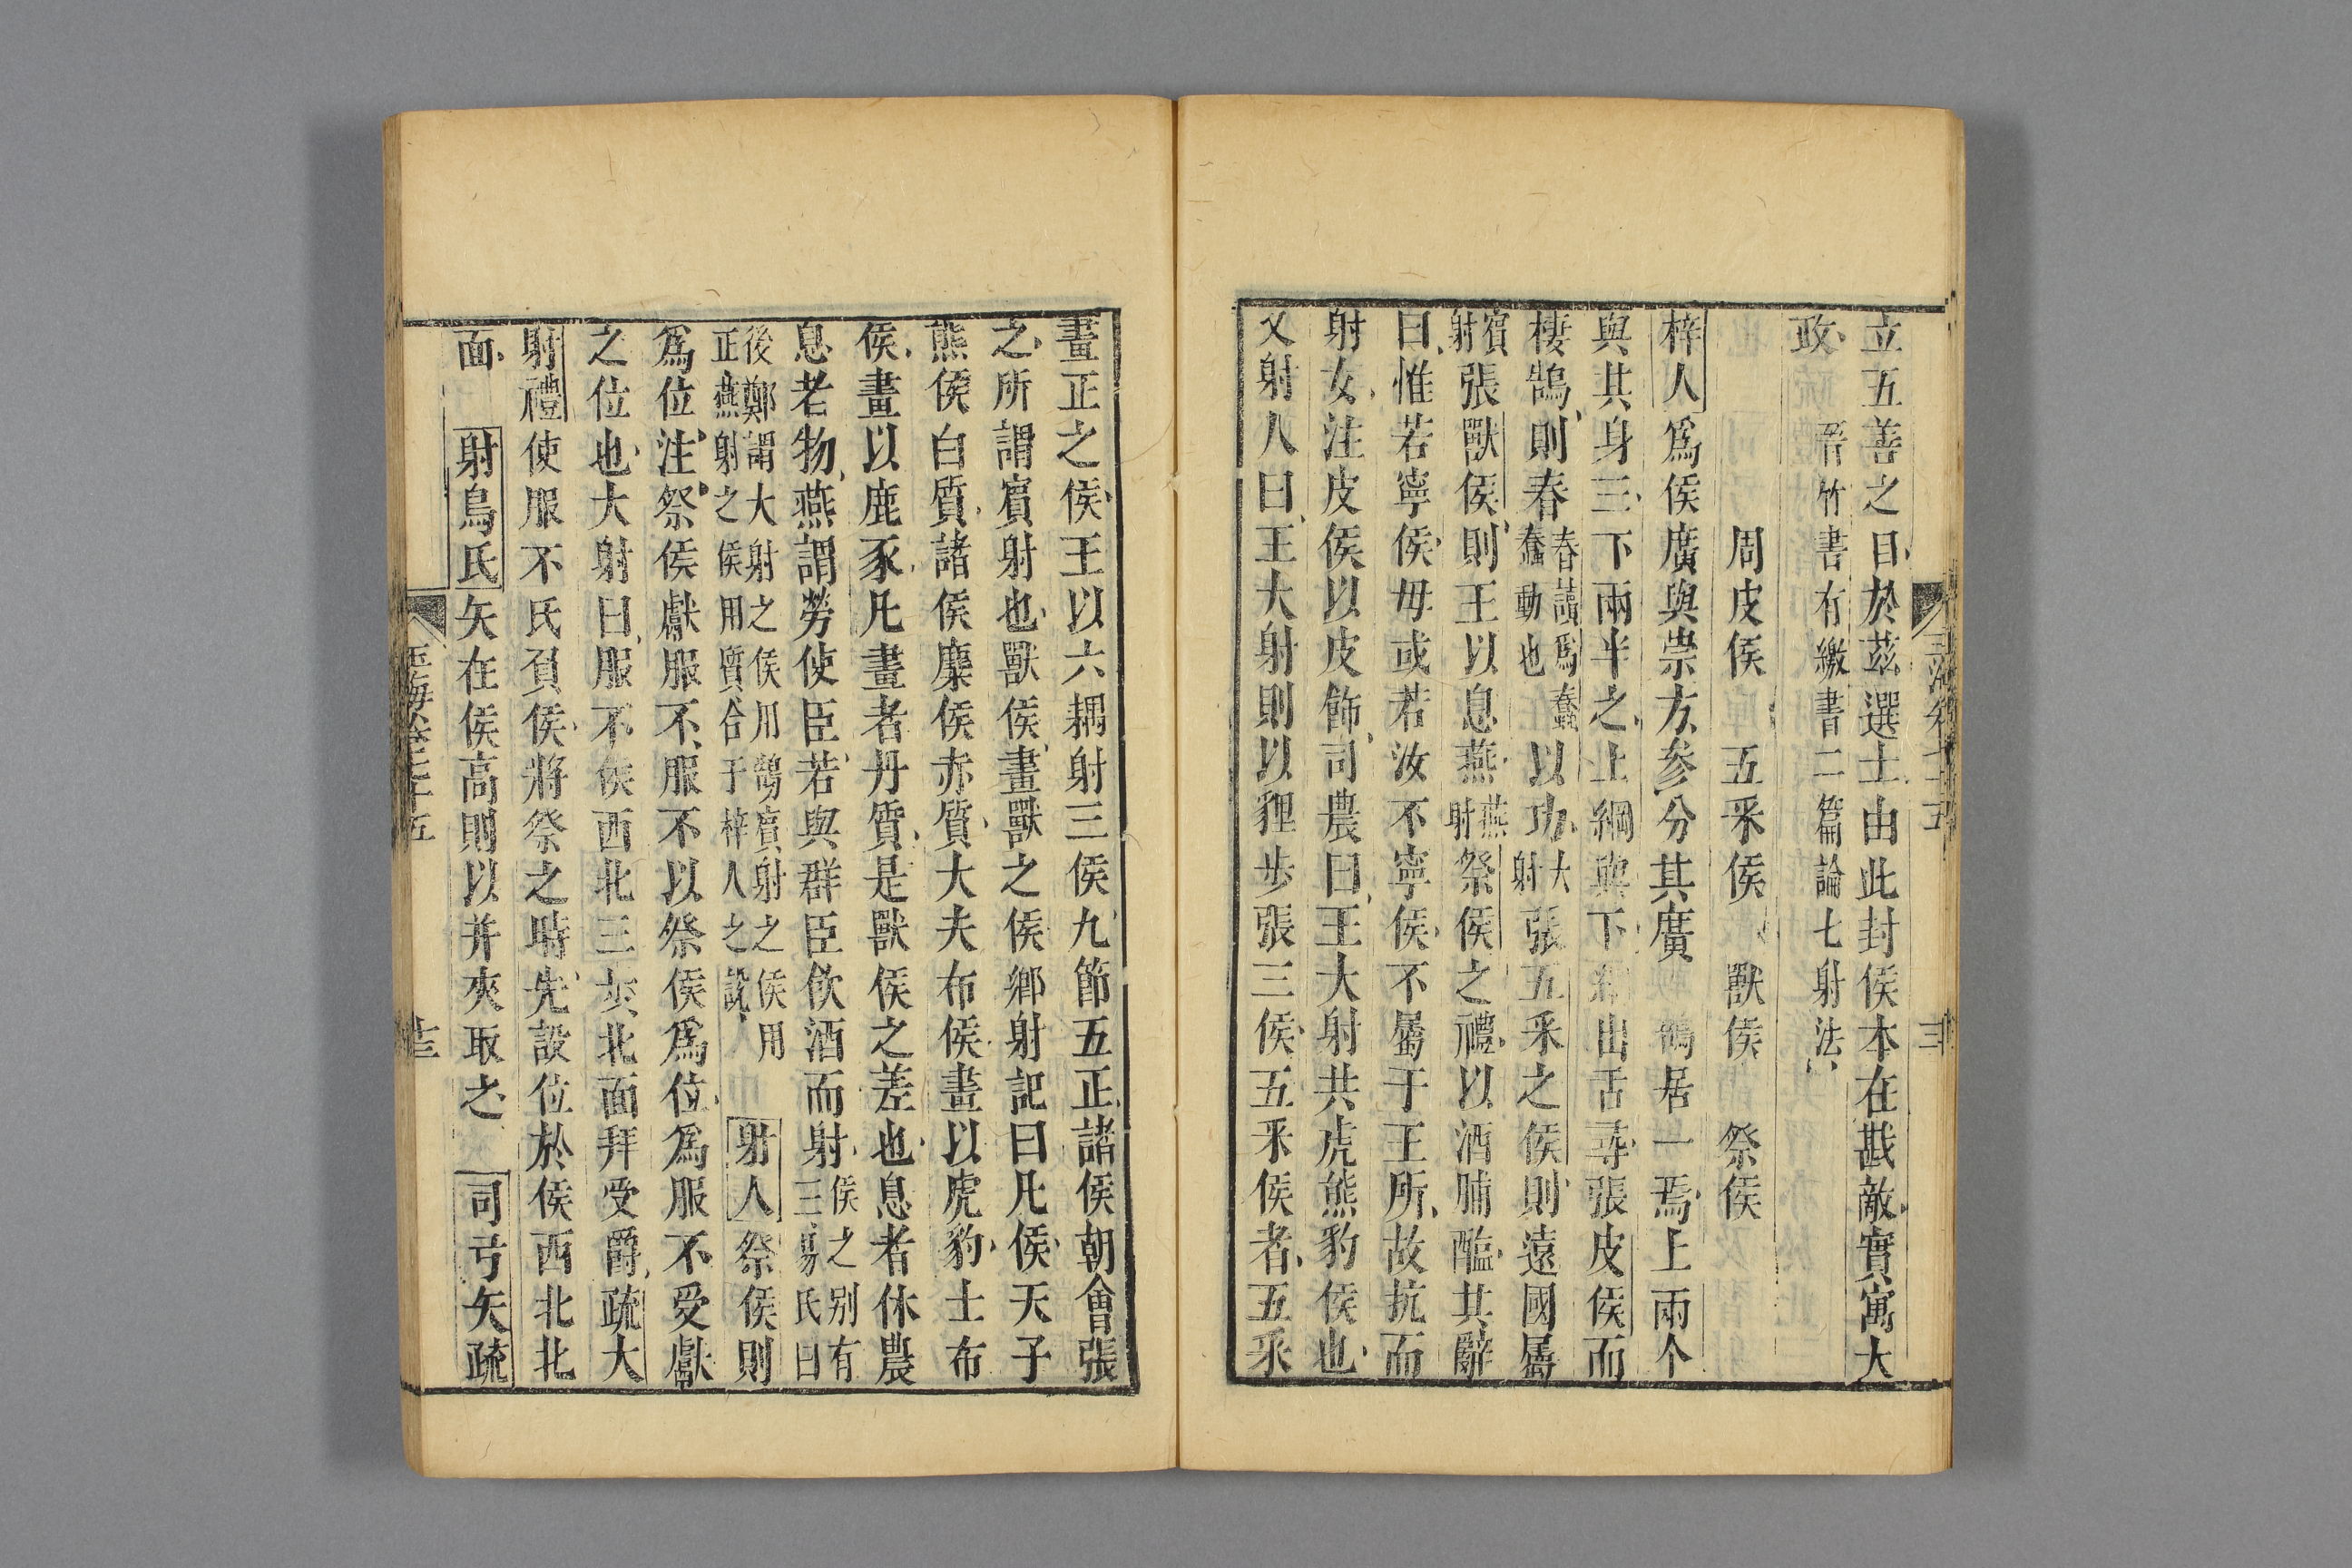 立五善之日於茲選士由此封侯本在戡敵實寓大
政 晉竹書有繳書二篇論七射法
周皮侯 五采侯 獸侯 祭侯
梓人爲侯廣與崇方參分其廣 鵠居一焉上兩个
與其身三下兩半之上綱與下綱出舌尋張皮侯而
棲鵠則春春讀爲蠢蠢動也以功大射張五采之侯則遠國屬
賓射張獸侯則王以息燕燕射祭侯之禮以酒脯醢其辭
曰惟若寧侯毋或若汝不寧侯不屬于王所故抗而
射女注皮侯以皮飾司農曰王大射共虎熊豹侯也
又射人曰王大射則以貍步張三侯五采侯者五采
玉海卷七十五
畫正之侯王以六耦射三侯九節五正諸侯朝會張
之所謂賓射也獸侯畫獸之侯鄉射記曰凡侯天子
熊侯白質諸侯麋侯赤質大夫布侯畫以虎豹士布
侯畫以鹿豕凡畫者丹質是獸侯之差也息者休農
息老物燕謂勞使臣若與群臣飲酒而射侯之别有三易氏曰
後鄭謂大射之侯用鵠賓射之侯用正燕射之侯用質合于梓人之說 射人祭侯則
爲位注祭侯獻服不服不以祭侯爲位爲服不受獻
之位也大射曰服不侯西北三步北面拜受爵疏大
射禮使服不氏負侯將祭之時先設位於侯西北北
面 射鳥氏矢在侯高則以并夾取之 司弓矢疏
玉海卷七十五